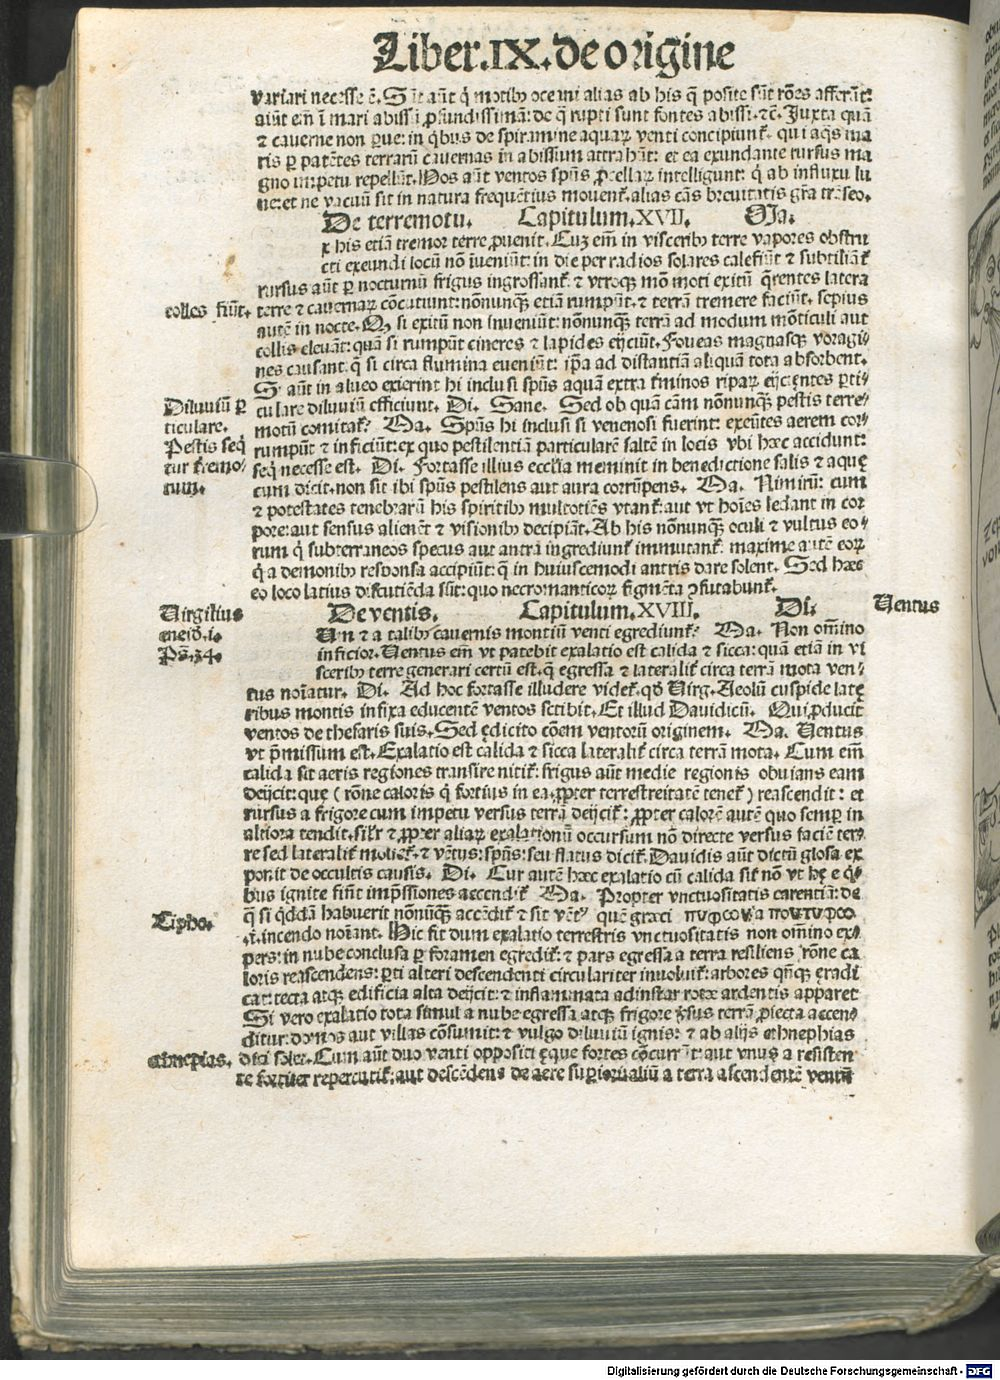 Liber.IX.de origine
variari necesse ē. Sūt aūt q̄ motibꝰ oceani alias ab his q̄ posite sūt rōes afferāt:
aiūt em̄ ī mari abissi ꝓfundissimā: de q̄ rupti sunt fontes abissi. ⁊c̄. Juxta quā
⁊ cauerne non que: in q̄bus de spiramine aquaꝝ venti concipiunt̄. qui aq̄s ma
ris ꝑ patētes terrarū cauernas in abissum attrahūt: et ea exundante rursus ma
gno impetu repellūt. Hos aūt ventos spūs ꝓcellaꝝ intelligunt: q̄ ab influxu lu
ne: et ne vacuū sit in natura frequētius mouent̄. alias cās breuitatis grā trāseo.
De terremotu. Capitulum.XVII. Ma.
x his etiā tremor terre ꝓuenit. Cuꝫ em̄ in visceribꝰ terre vapores obstru
cti exeundi locū nō īueniūt: in die per radios solares calefiūt ⁊ subtiliāt̄
rursus aūt ꝑ nocturnū frigus ingrossant̄. ⁊ vtroqꝫ mō moti exitū q̄rentes latera
colles fiūt. terre ⁊ cauernaꝝ cōcutiunt: nōnunqꝫ etiā rumpūt. ⁊ terrā tremere faciūt. sepius
autē in nocte. Qꝫ si exitū non inueniūt: nōnunqꝫ terrā ad modum mōticuli aut
collis eleuāt: quā si rumpūt cineres ⁊ lapides eijciūt. Foueas magnasqꝫ voragi
nes causant. q̄ si circa flumina eueniūt: ip̄a ad distantiā aliquā tota absorbent.
Si aūt in alueo exierint hi inclusi spūs aquā extra t̄minos ripaꝝ eijciētes ꝑti⸗
Diluuiū ꝑ culare diluuiū efficiunt. Di. Sane. Sed ob quā cām nōnunqꝫ pestis terre⸗
ticulare. motū comitat̄? Ma. Spūs hi inclusi si venenosi fuerint: exeūtes aerem cor⸗
Pestis seq̄ rumpūt ⁊ inficiūt: ex quo pestilentiā particularē saltē in locis vbi hæc accidunt:
tur t̄remo⸗ seq̄ necesse est. Di. Fortasse illius eccl̄ia meminit in benedictione salis ⁊ aquę
tum. cum dicit. non sit ibi spūs pestilens aut aura corrūpens. Ma. Nimirū: cum
⁊ potestates tenebrarū his spiritibꝰ multotiēs vtant̄: aut vt hoīes ledant in cor
pore: aut sensus alienēt ⁊ visionibꝰ decipiāt. Ab his nōnunqꝫ oculi ⁊ vultus eo⸗
rum q̄ subterraneos specus aut antra ingrediunt̄ immutant̄: maxime autē eoꝝ
q̄ a demonibꝰ responsa accipiūt: q̄ in huiuscemodi antris dare solent. Sed hæc
eo loco latius discutiēda sūt: quo necromanticoꝝ figmēta ꝯfutabunt̄.
Virgilius De ventis. Capitulum.XVIII. Di. Ventus
eneid̄.i. Vn ⁊ a talibꝰ cauernis montiū venti egrediunt̄? Ma. Non om̄ino
Ps̄.134. inficior. Ventus em̄ vt patebit exalatio est calida ⁊ sicca: quā etiā in vi
sceribꝰ terre generari certū est. q̄ egressa ⁊ laterali circa terrā mota ven⸗
tus noīatur. Di. Ad hoc fortasse illudere videt̄. qd̄ Virg. Aeolū cuspide latę
ribus montis infixa educentē ventos scribit. Et illud Dauidicū. Qui ꝓducit
ventos de thesaris suis. Sed ędicito cōem ventorū originem. Ma. Ventus
vt p̄missum est. Exalatio est calida ⁊ sicca lateralit̄ circa terrā mota. Cum em̄
calida sit aeris regiones transire nitit̄: frigus aūt medie regionis obuians eam
deijcit: quę (rōne caloris q̄ fortius in ea. ꝓpter terrestreitatē tenet̄) reascendit: et
rursus a frigore cum impetu versus terrā deijcit̄: ꝓpter calorē autē quo semper in
altiora tendit. sil̄r ⁊ ꝓpter aliaꝝ exalationū occursum nō directe versus faciē ter⸗
re sed lateralit̄ mouet̄. ⁊ vētus: spūs: seu flatus dicit̄. Dauidis aūt dictū glosa ex
ponit de occultis causis. Di. Cur autē hæc exalatio cū calida sit nō vt hę e q̄⸗
bus ignite fiūt imp̄ssiones accendit̄ Ma. Propter vnctuositatis carentiā: de
Tipho. q̄ si q̄ddā habuerit nōnūqꝫ accēdit̄ ⁊ fit vēt⁹ quē græci
.i. incendo noīant. Hic fit dum exalatio terrestris vnctuositatis non om̄ino ex⸗
pers: in nube conclusa ꝑ foramen egredit̄: ⁊ pars egressa a terra resiliens rōne ca
loris reascendens: ꝑti alteri descendenti circulariter inuoluit̄: arbores qn̄qꝫ eradi
cat: tecta atqꝫ edificia alta deijcit: ⁊ inflammata ad instar rotæ ardentis apparet
Si vero exalatio tota simul a nube egressa atqꝫ frigore v̄sus terrā ꝓiecta accen⸗
ditur: domos aut villas cōsumit: ⁊ vulgo diluuiū ignis: ⁊ ab alijs ethnephias
ethnepias. dici solet. Cum aūt duo venti oppositi ęque fortes cōcurrūt: aut vnus a resisten
te fortiter repercutit̄: aut descēdens de aere suꝑiori aliū a terra ascendentē ventū
Digitalisierung gefördert durch die Deutsche Forschungsgemeinschaft - DFG